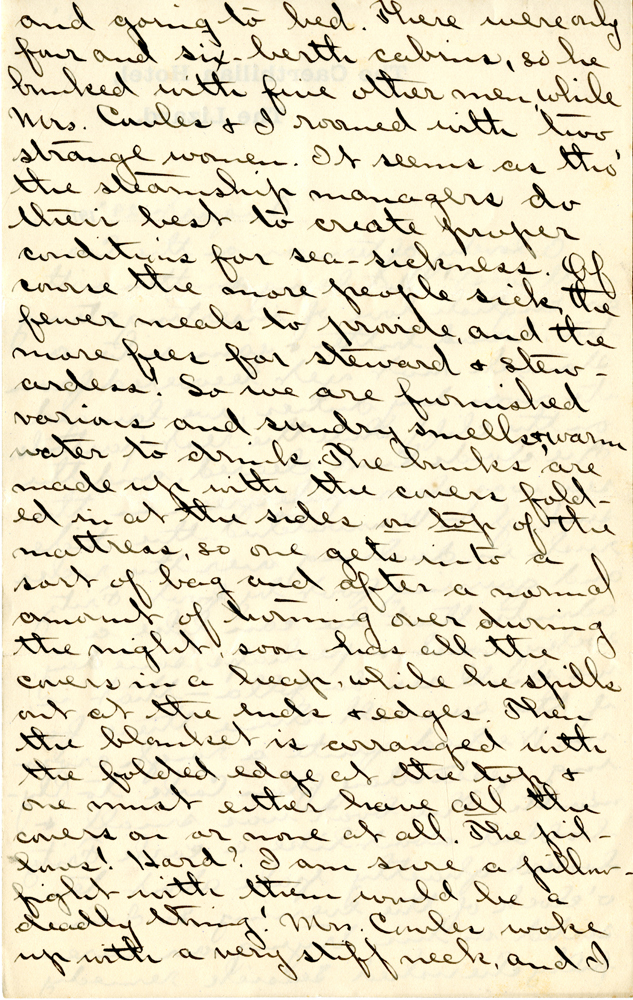 and going to bed. There were only
four and six-berth cabins, so he
bunked with five other men, while
Mrs. Cowles & I roomed with two
strange women. It seems as tho'
the steamship managers do
their best to create proper
conditions for sea-sickness. Of
course the more people sick, the
fewer meals to provide, and the
more fees for steward & stew-
ardess! So we are furnished
various and sundry smells & warm
water to drink. The bunks are
made up with the covers fold-
ed in at the sides on top of the
mattress, so one gets into a
sort of bag and after a normal
amount of turning over during
the night, soon has all the
covers in a heap, while he spills
out at the ends & edges. Then
the blanket is arranged with
the folded edge at the top &
one must either have all the
covers on or none at all. The pil-
lows! Hard? I am sure a pillow-
fight with them would be a
deadly thing! Mrs. Cowles woke
up with a very stiff neck, and I